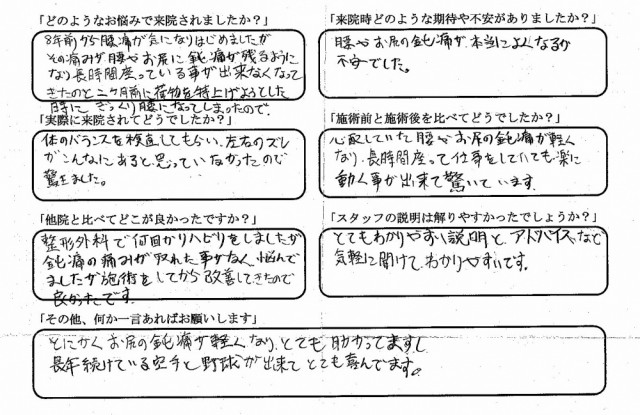 「どのようなお悩みで来院されましたか？」
8年前から腰痛が気になりはじめましたが
その痛みが腰やお尻に鈍痛が残るように
なり長時間座っている事が出来なくなって
きたのと二ヶ月前に荷物を持上げようとした
時に ぎっくり腰になってしまったので
「来院時どのような期待や不安がありましたか？」
腰やお尻の鈍痛が本当によくなるか
不安でした。
「実際に来院されてどうでしたか？」
体のバランスを検査してもらい、左右のズレ
がこんなにあると思っていなかったので
驚きました。
「施術前と施術後を比べてどうでしたか？」
心配していた腰やお尻の鈍痛が軽く
なり、長時間座って仕事をしていても楽に
動く事が出来て驚いています。
「他院と比べてどこが良かったですか？」
整形外科で何回かリハビリをしましたが
鈍痛の痛みが取れた事がなく悩んで
ましたが施術をしてから改善してきたので
良かったです。
「スタッフの説明は解りやすかったでしょうか？」
とてもわかりやすい説明と、アドバイスなど
気軽に聞けてわかりやすいです。
「その他、何か一言あればお願いします」
とにかくお尻の鈍痛が軽くなり、とても助かってますし
長年続けている空手と野球が出来てとても喜んでます。